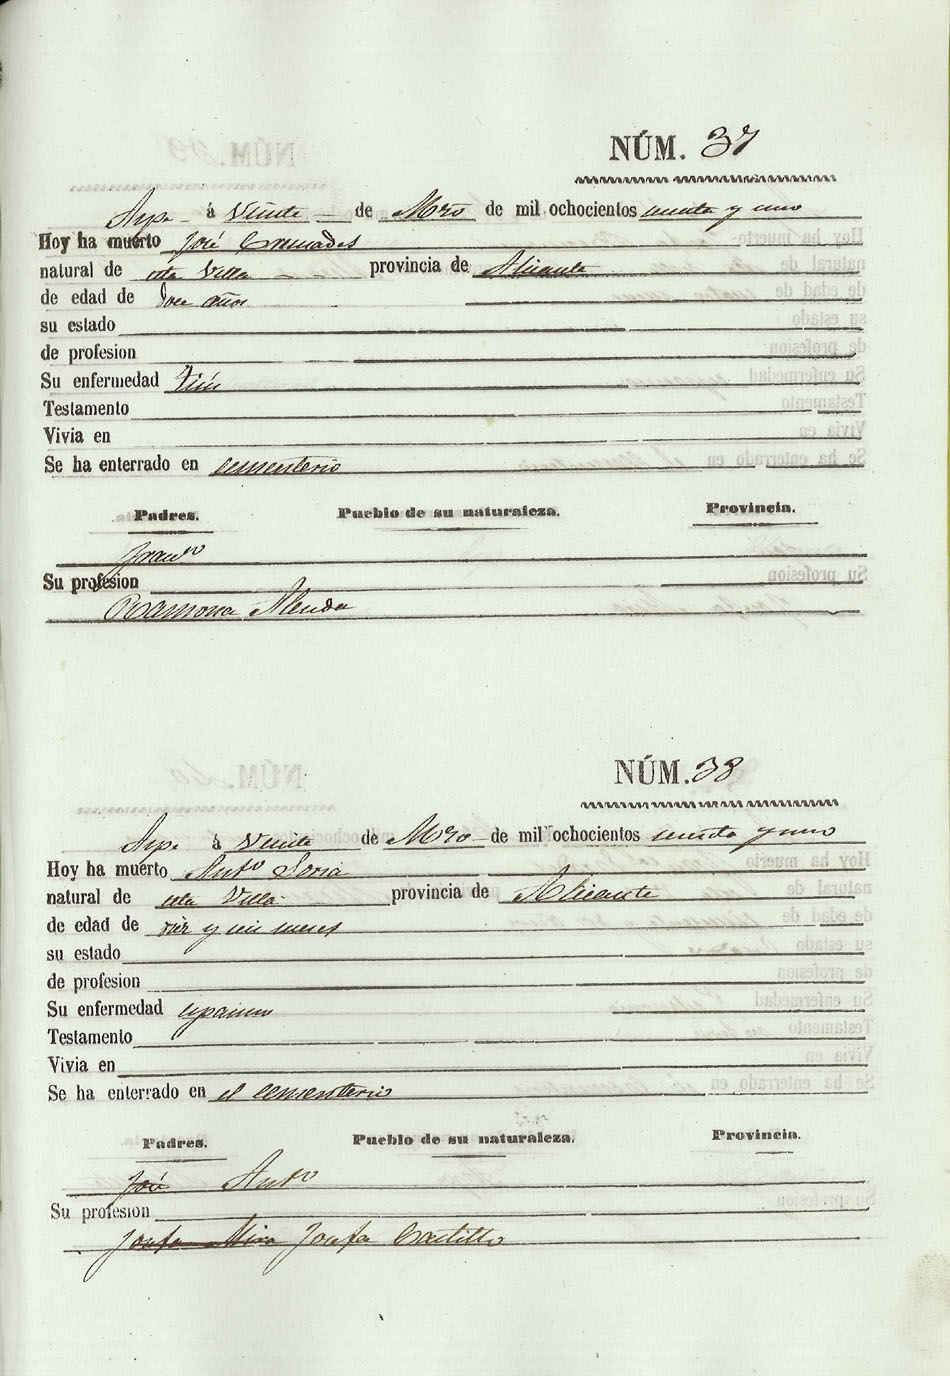 NÚM. 37
Aspe á Veinte de Mzo de mil ochocientos
Hoy ha muerto José Cremades
natural de esta Villa provincia de Alicante
de edad de doce años
su estado
de profesion
Su enfermedad Tisis
Testamento
Vivia en
Se ha enterrado en cementerio
Padres. Pueblo de su naturaleza. Provincia.
Franco
Su profesion
Ramona Alenda
NÚM. 38
Aspe á Veinte de Mzo de mil ochocientos
Hoy ha muerto Anto Soria
natural de esta Villa provincia de Alicante
de edad de diez y seis meses
su estado
de profesion
Su enfermedad espasmo
Testamento
Vivia en
Se ha enterrado en el cementerio
Padres. Pueblo de su naturaleza. Provincia.
José Anto
Su profesion
Josefa Mira Josefa Castillo